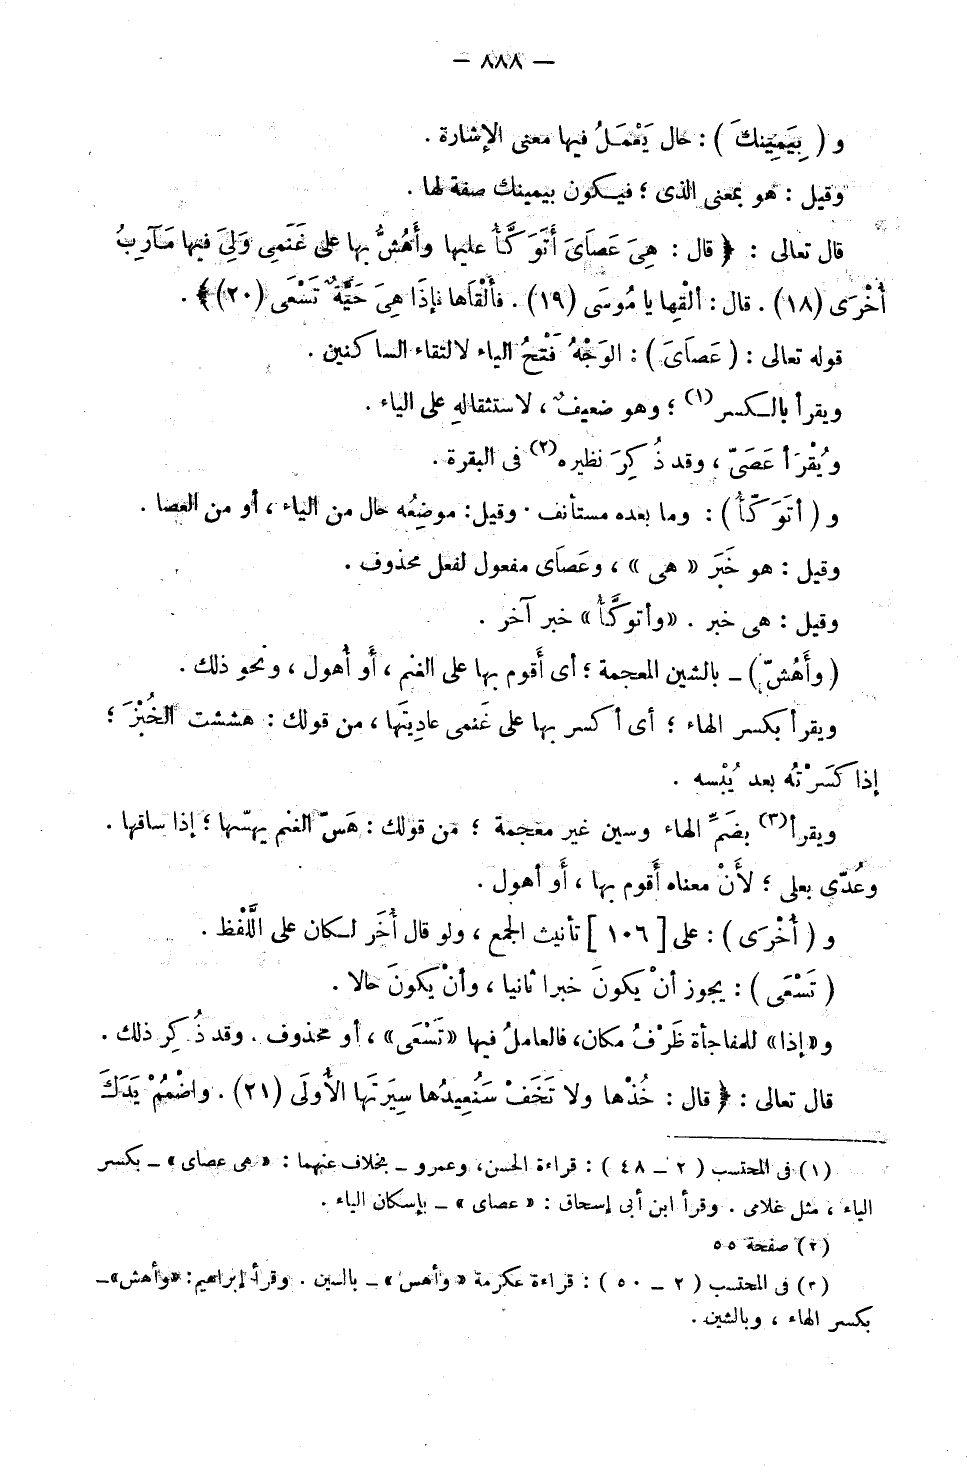 — ٨٨٨ —
و ( بِيَمِينِكَ ) : حال يَعْمَلُ فيها معنى الإشارة .
وقيل : هو بمعنى الذى ؛ فيكون بيمينك صفة لها .
قال تعالى : ﴿ قال : هِىَ عَصَاىَ أَتَوَكَّأُ عليها وأَهُشُّ بها على غَنَمِى وَلِىَ فيها مَآرِبُ
أُخْرَى (١٨) . قال : ألْقِها يا مُوسَى (١٩) . فأَلْقَاها فإِذَا هِىَ حَيَّةٌ تَسْعَى (٢٠) ﴾ .
قوله تعالى : ( عَصَاىَ ) : الوَجْهُ فَتْحُ الياء لالتقاء الساكنين .
ويقرأ بالكسر(١) ؛ وهو ضعيفٌ ، لاستثقالِهِ على الياء .
ويُقْرَأ عَصَىّ ، وقد ذُكِرَ نظيره(٢) فى البقرة .
و ( أتَوَكّأُ ) : وما بعده مستأنف . وقيل : موضِعُه حال من الياء ، أو من العصا .
وقيل : هو خَبَر « هى » ، وعَصَاى مفعول لفعل محذوف .
وقيل : هى خبر . «وأتوكَّأُ» خبر آخر .
( وأَهُشّ ) – بالشين المعجمة ؛ أى أَقوم بها على الغنم ، أو أهول ، ونحو ذلك .
ويقرأ بكسر الهاء ؛ أى أكسر بها على غَنمى عادِيتَها ، من قولك : هششت الخُبْزَ ؛
إذا كَسَرْتُه بعد يُبْسه .
ويقرأ(٣) بضَمِّ الهاء وسين غير معجمة ؛ من قولك : هَسّ الغنم يهسّها ؛ إذا ساقها .
وعُدّى بعلى ؛ لأَنْ معناه أَقوم بها ، أو أهول .
و ( أُخْرَى ) : على [ ١٠٦ ] تأنيث الجمع ، ولو قال أُخَر لكان على اللَّفْظ .
( تَسْعَى ) : يجوز أنْ يكونَ خبرا ثانيا ، وأنْ يكونَ حالا .
و«إذا» للمفاجأة ظَرْفُ مكان، فالعاملُ فيها «تَسْعَى» ، أو محذوف . وقد ذُكِر ذلك .
قال تعالى : ﴿ قال : خُذْها ولا تَخَفْ سَنُعِيدُها سِيَرتَها الأُولَى (٢١) . واضْمُمْ يَدَكَ
(١) فى المحتسب ( ٢ – ٤٨ ) : قراءة الحسن، وعمرو – بخلاف عنهما : « هى عصاى » – بكسر
الياء ، مثل غلامى . وقرأ ابن أبى إسحاق : « عصاى » – بإسكان الياء .
(٢) صفحة ٥٥
(٣) فى المحتسب ( ٢ – ٥٠ ) : قراءة عكرمة « وأهس » – بالسين . وقرأ إبراهيم : «وأهش» –
بكسر الهاء ، وبالشين .